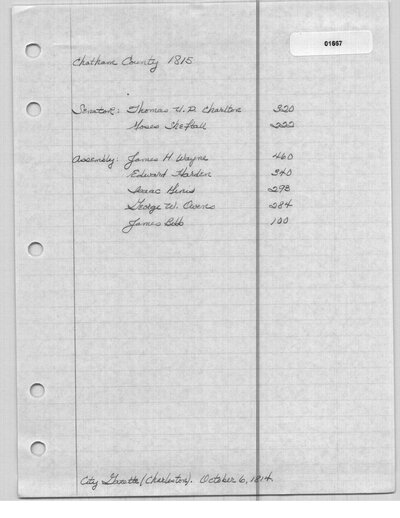 01667
Chatham County 1815
Senator: Thomas U. P. Charlton 320
Moses Sheftall 222
Assembly: James M Wayne 460
Edward Harden 340
Isaac 298
George W. Owens 284
James Bibb 100
City Gazette (Charleston). October 6, 1814